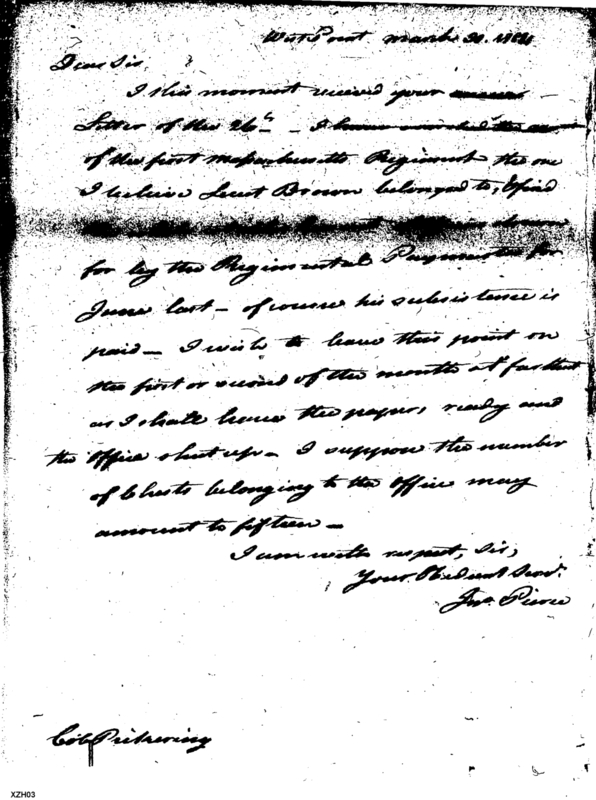 West Point March 30. 1784
Dear Sir
I this moment received your
Letter of the 26th -
of the first Massachusetts Regiment the one
I believe Lieut Brown belonged to, I find
for by the Regimental Paymaster for
June last - of course his subsistence is
paid - I wish to leave this point on
the first or second of the month at farthest
as I shall have the papers ready and
the Office shut up - I suppose the number
of Chests belonging to the Office may
amount to fifteen -
I am with respect, Sir,
Your Obedient Servt.
Jno. Pierce
Col Pickering
XZH03